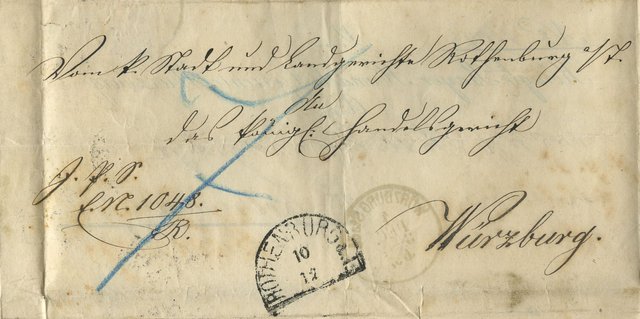 Vom k. Stadt und Landgerichte Rothenburg a/T.
An
das königl: Handelsgericht
J. P. S.
E.N. 1048.
R.
Würzburg.
ROTHENBURG
10
12